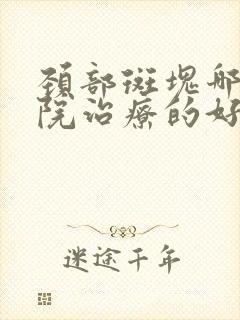 颈部斑块哪
院治疗的好
迷途千年